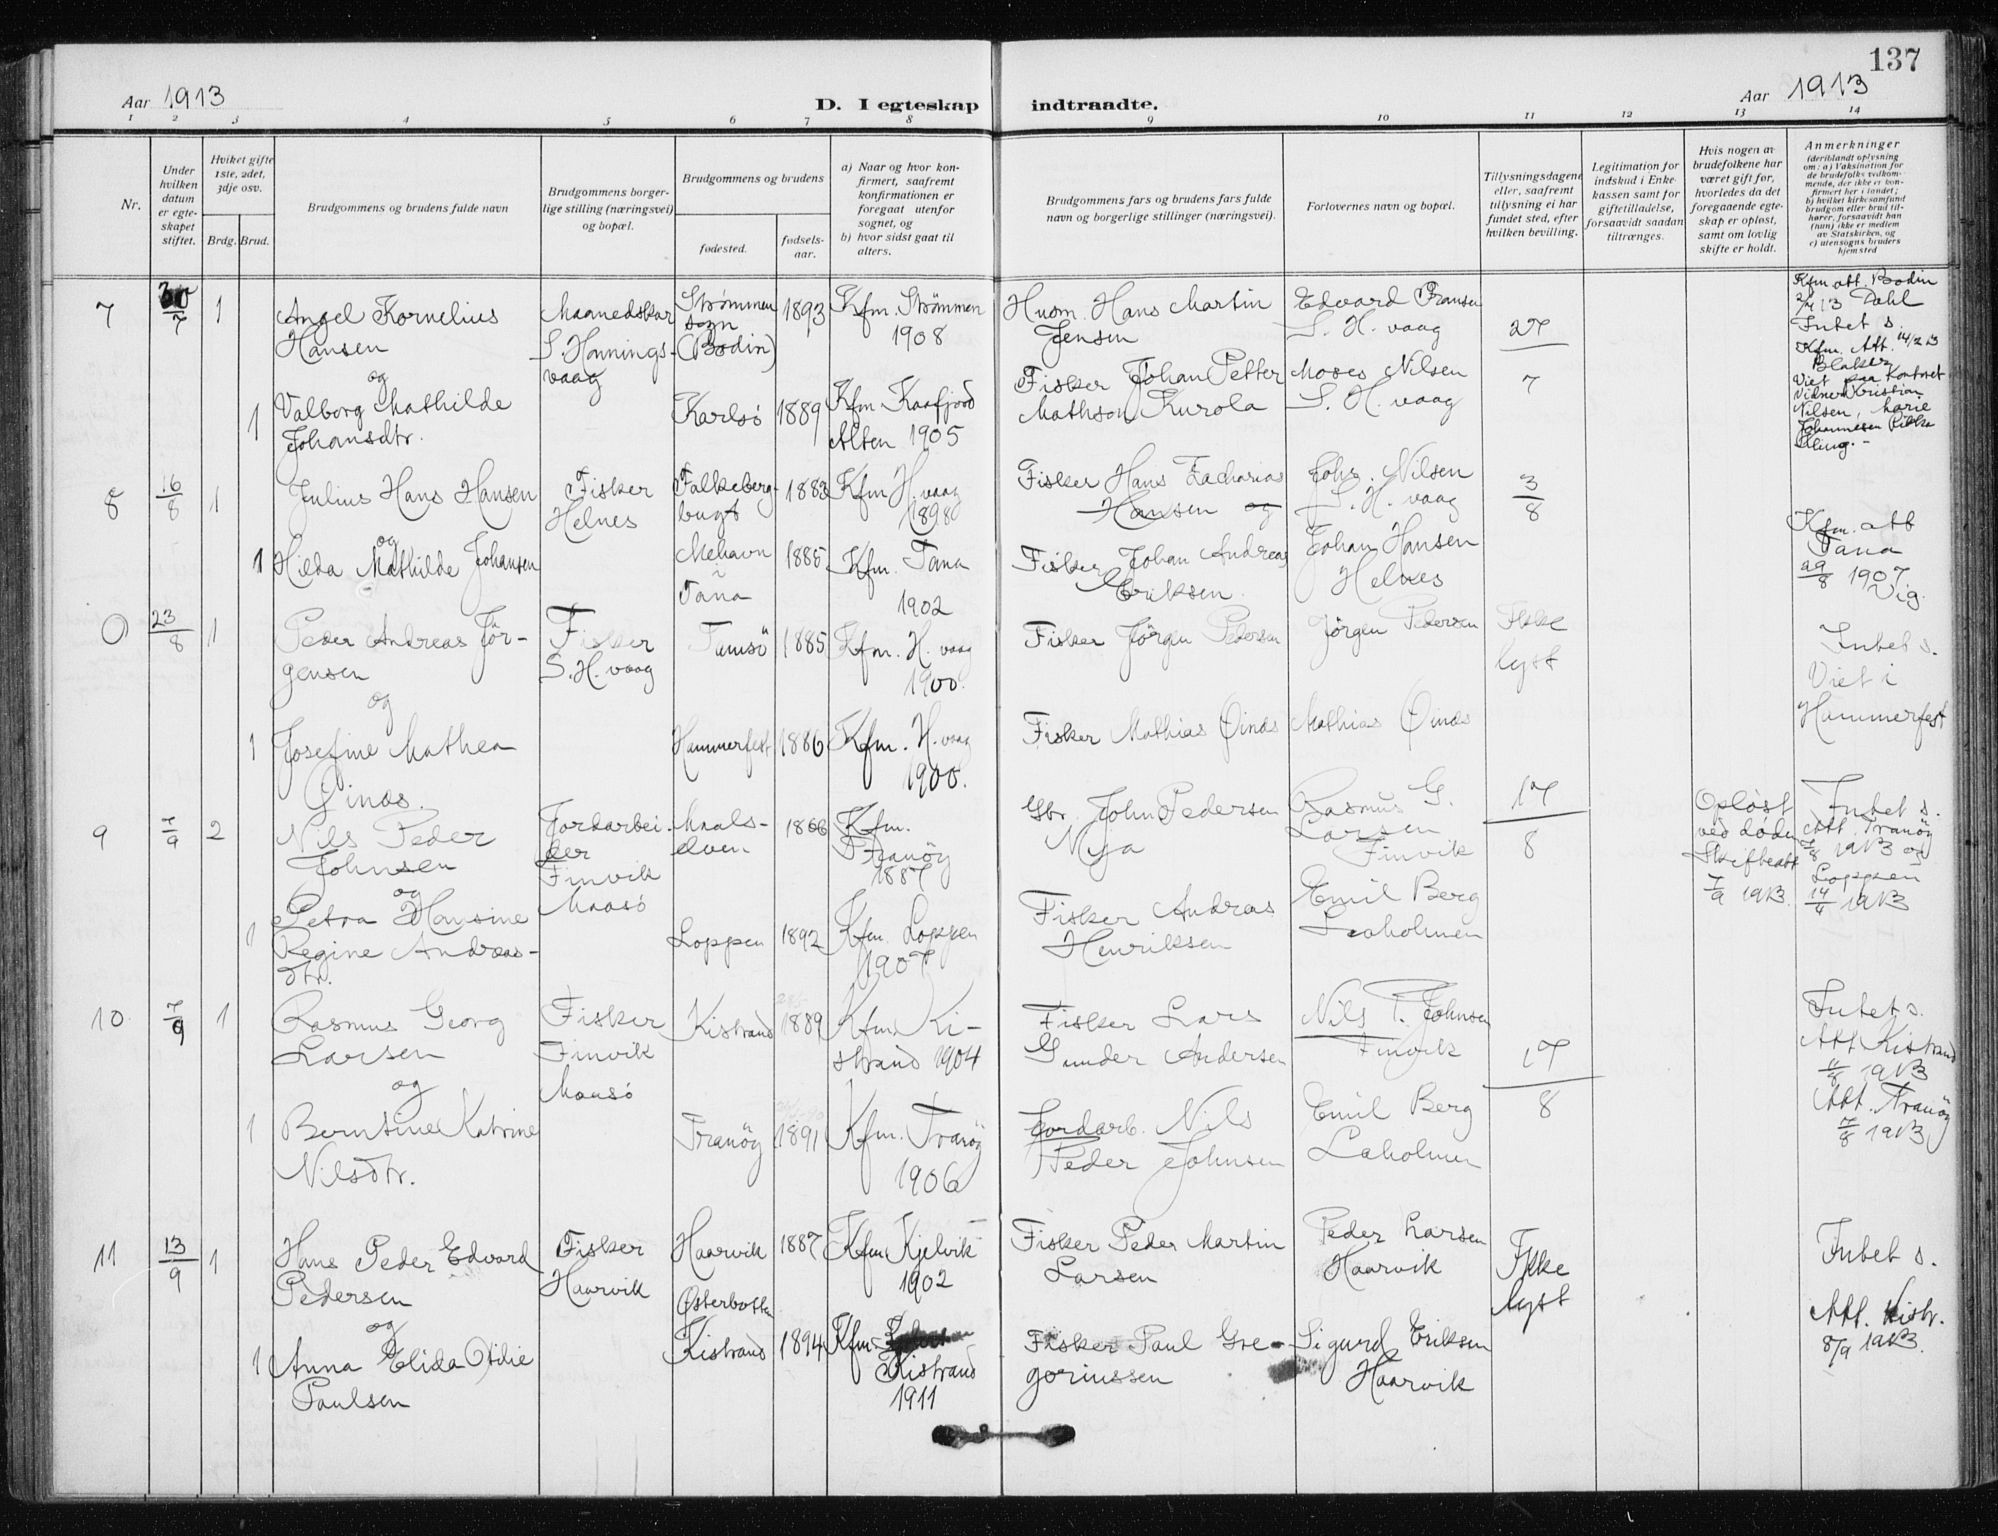 137
Aar 1913
D. I egteskap indtraadte.
Aar 1913
1 2 3 4 5 6 7 8 9 10 11 12 13 14
Nr.
Under hvilken datum er egte-skapet stiftet.
Hvilket gifte 1ste, 2det, 3dje osv.
Brdg. Brud.
Brudgommens og brudens fulde navn
Brudgommens borger-lige stilling (næringsvei) og bopæl.
Brudgommens og brudens
fødested.
fødsels-aar.
a) Naar og hvor kon-firmert, saafremt konfirmationen er foregaat utenfor sognet, og
b) hvor sidst gaat til alters.
Brudgommens fars og brudens fars fulde navn og borgerlige stillinger (næringsvei).
Forlovernes navn og bopæl.
Tillysningsdagene eller, saafremt tillysning ei har fundet sted, efter hvilken bevilling.
Legitimation for indskud i Enke-kassen samt for giftetilladelse, forsaavidt saadan tiltrænges.
Hvis nogen av brudefolkene har været gift før, hvorledes da det foregaaende egte-skap er opløst, samt om lovlig skifte er holdt.
Anmerkninger
(deriblandt oplysning om: a) Vaksination for de brudefolks vedkom-mende, der ikke er kon-firmert her i landet; b) hvilket kirkesamfund brudgom eller brud til-hører, forsaavidt han (hun) ikke er medlem av Statskirken, og c) utensogns bruders hjemsted
7
30/7
1
Angel Kornelius
Hansen
og
Maanedskar
S. Honnings-
vaag
Strømmen
sogn
(Bodin)
1893
Kfm. Strømmen
1908
Husm. Hans Martin
Jensen
Edvard Fransen
S. H. vaag
27
7
Kfm att. Bodin
2/7 13 Dahl
Intet s.
Kfm. Att. 14/2 13
Viet paa Kontoret
Kristian
Nilsen, Marie
Johannesen
1
Valborg Mathilde
Johansdtr.
Karlsö
1889
Kfm. Kaafjord
Alten 1905
Fisker Johan Petter
Mathson Kurola
Moses Nilsen
S. H. vaag
8
16/8
1
Julius Hans Hansen
og
Fisker
Helnes
Falkeberg-
bugt
1883
Kfm H. vaag
1898
Fisker Hans Zacharias
Hansen og
Johs. Nilsen
S. H. vaag
3/8
1
Hilda Mathilde Johansen
Mehavn
i
Tana
1885
Kfm. Tana
1902
Fisker Johan Andreas
Eriksen.
Johan Hansen
Helnes
Kfm. att
Tana
29/8 1907.
Vig.
0
23/8
1
Peder Andreas Jör-
gensen
og
Fisker
S. H. vaag
Tamsö
1885
Kfm. H. vaag
1900.
Fisker Jörgen Pedersen
Jörgen Pedersen
Ikke
lyst
Intet s.
Viet i
Hammerfest
1
Josefine Mathea
Øinas.
Hammerfest
1886
Kfm. H. vaag
1900.
Fisker Mathias Øinas
Mathias Øinas
9
7/9
2
Nils Peder
Johnsen
og
Jordarbei-
der
Finvik
Maasö
Maals-
elven
1866
Kfm.
Tranöy
1887
Gbr. John Pedersen
Mya
Rasmus G.
Larsen
Finvik
17
8
Opløst
ved døden
Skifteatt
7/9 1913.
Intet s.
Att. Tranöy
7/8 1913 og
Loppen
14/4 1913
1
Petra Hansine
Regine Andreas-
dtr.
Loppen
1892
Kfm. Loppen
1907
Fisker Andreas
Henriksen
Emil Berg
Laholmen
10
7/9
1
Rasmus Georg
Larsen
og
Fisker
Finvik
Maasö
Kistrand
1889
Kfm. Ki-
strand 1904
Fisker Lars
Gunder Andersen
Nils P. Johnsen
Finvik
17
8
Intet s.
Att Kistrand
1913
Att. Tranöy
7/8 1913
1
Berntine Katrine
Nilsdtr.
Tranöy
1891
Kfm. Tranöy
1906
Jordarb. Nils
Peder Johnsen
Emil Berg
Laholmen
11
13/9
1
Hans Peder Edvard
Pedersen
og
Fisker
Haarvik
Haarvik
1887
Kfm Kjelvik
1902
Fisker Peder Martin
Larsen
Peder Larsen
Haarvik
Ikke
lyst
Intet s.
1
Anna Elida Otilie
Paulsen
Østerbotten
Kistrand
1894
Kfm.
Kistrand
1911
Fisker Paul Gre-
goriussen
Sigurd Eriksen
Haarvik
Att. Kistr.
8/9 1913.